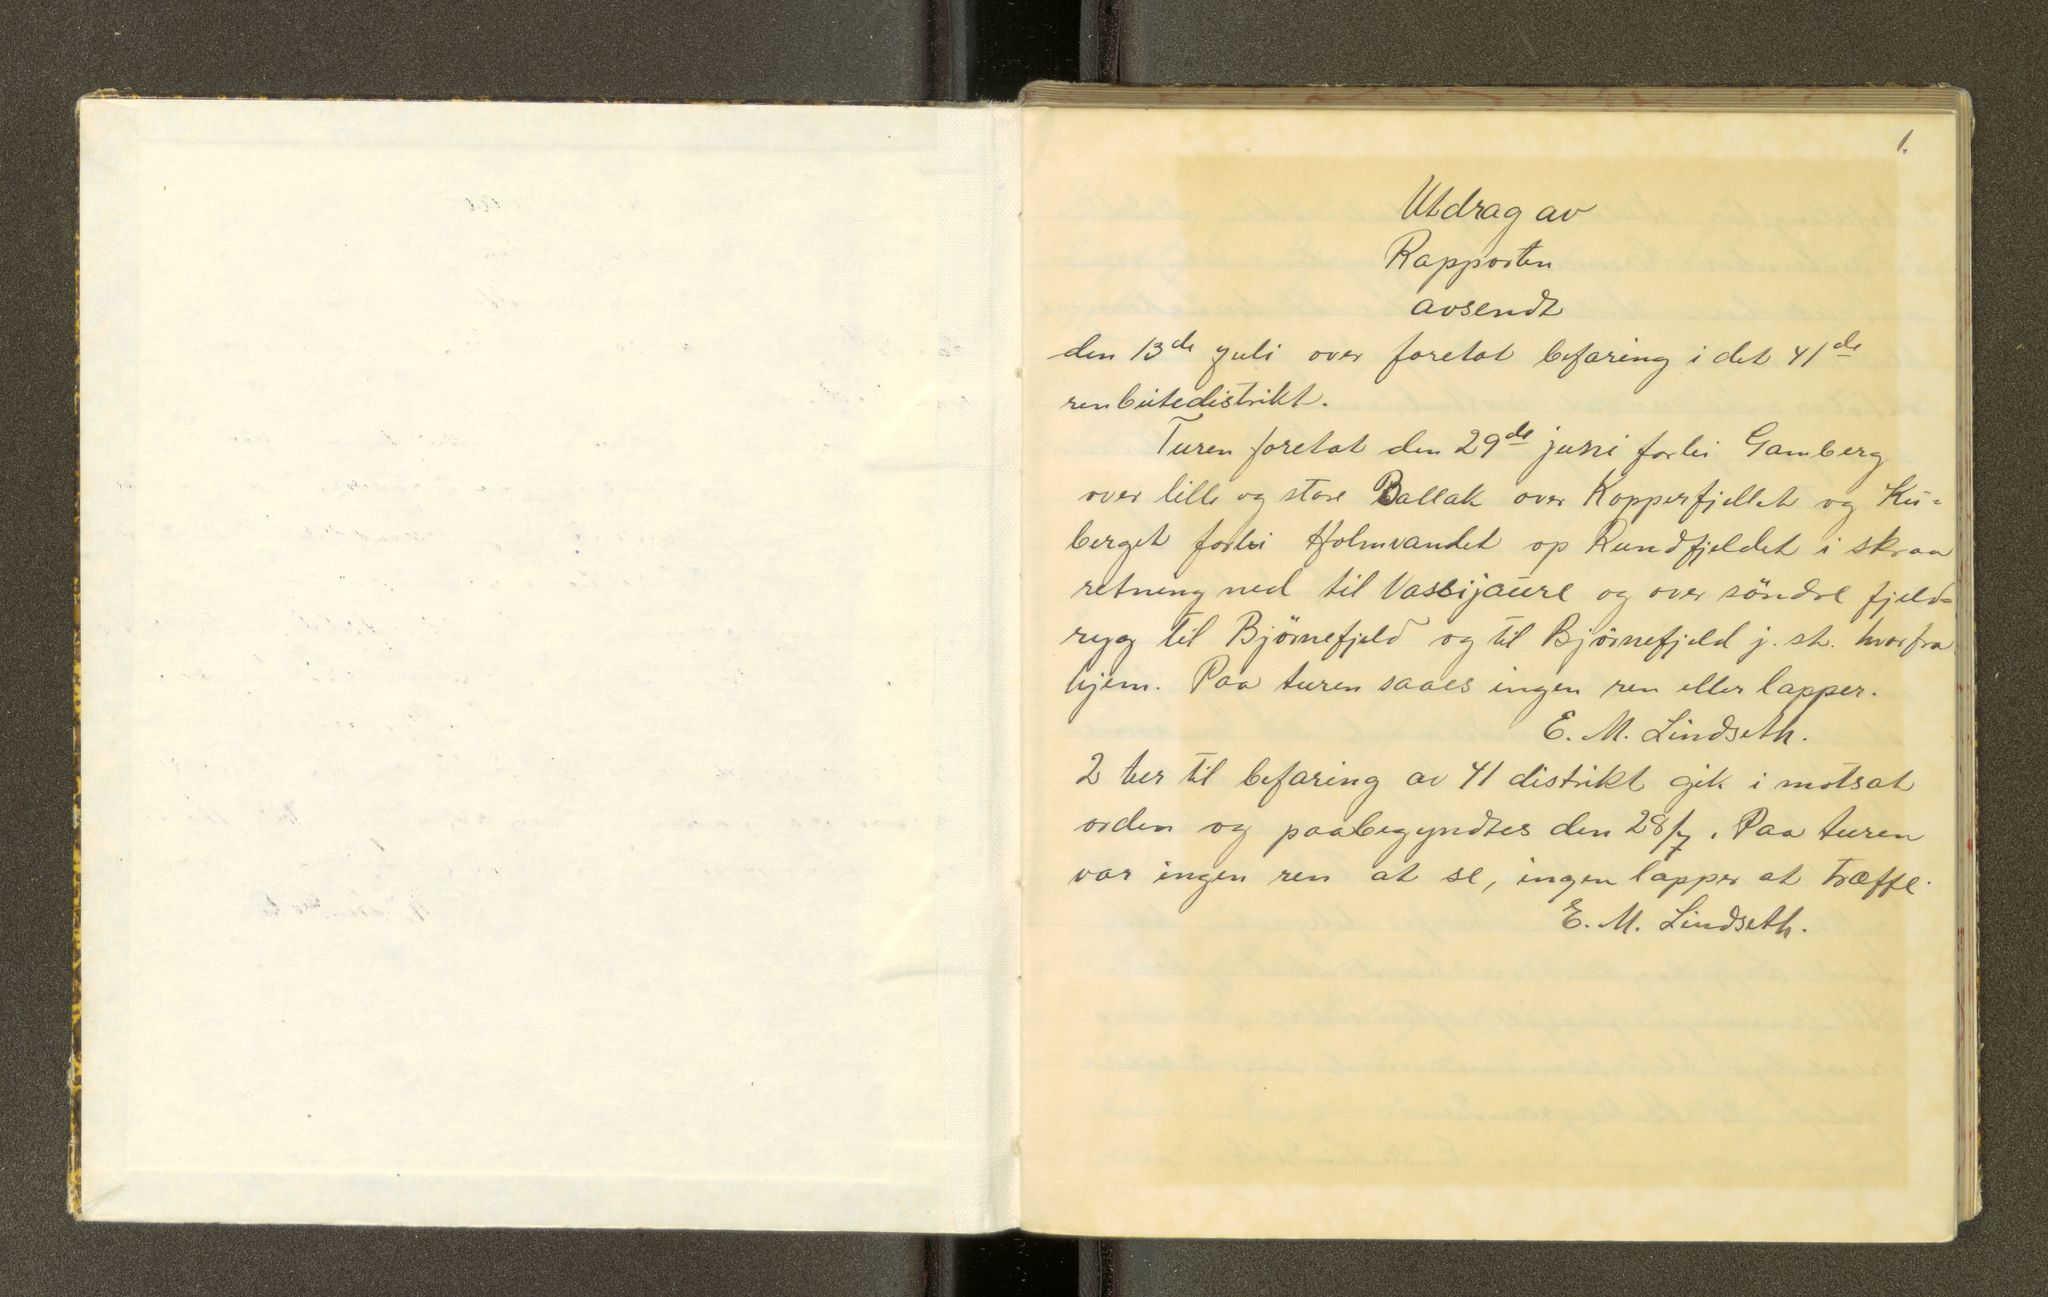 1.
Utdrag av
Rapporten
avsendt
den 13de juli over foretat befaring i det 41de
renbeitedistrikt.
Turen foretat den 29de juni forbi Gamberg
over lille og store Ballak over Kopperfjellet og Ku-
berget forbi Holmvandet op Rundfjeldet i skraa
retning ned til Vassijaure og over söndre fjeld-
ryg til Bjørnefjeld og til Bjørnefjeld j. st. hvorfra
hjem. Paa turen saaes ingen ren eller lapper.
E. M. Lindseth.
2 tur til befaring av 41 distrikt gik i motsat
orden og paabegyndtes den 28/7. Paa turen
var ingen ren at se, ingen lapper at træffe.
E. M. Lindseth.